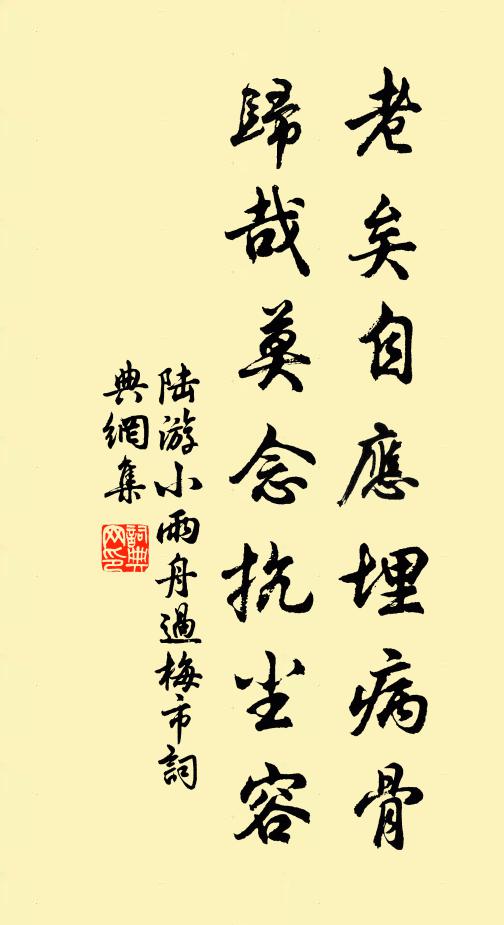 老矣自應埋病骨
歸哉莫念抗尘容
陆游小雨舟過梅市詞
典網集
詞典
网印